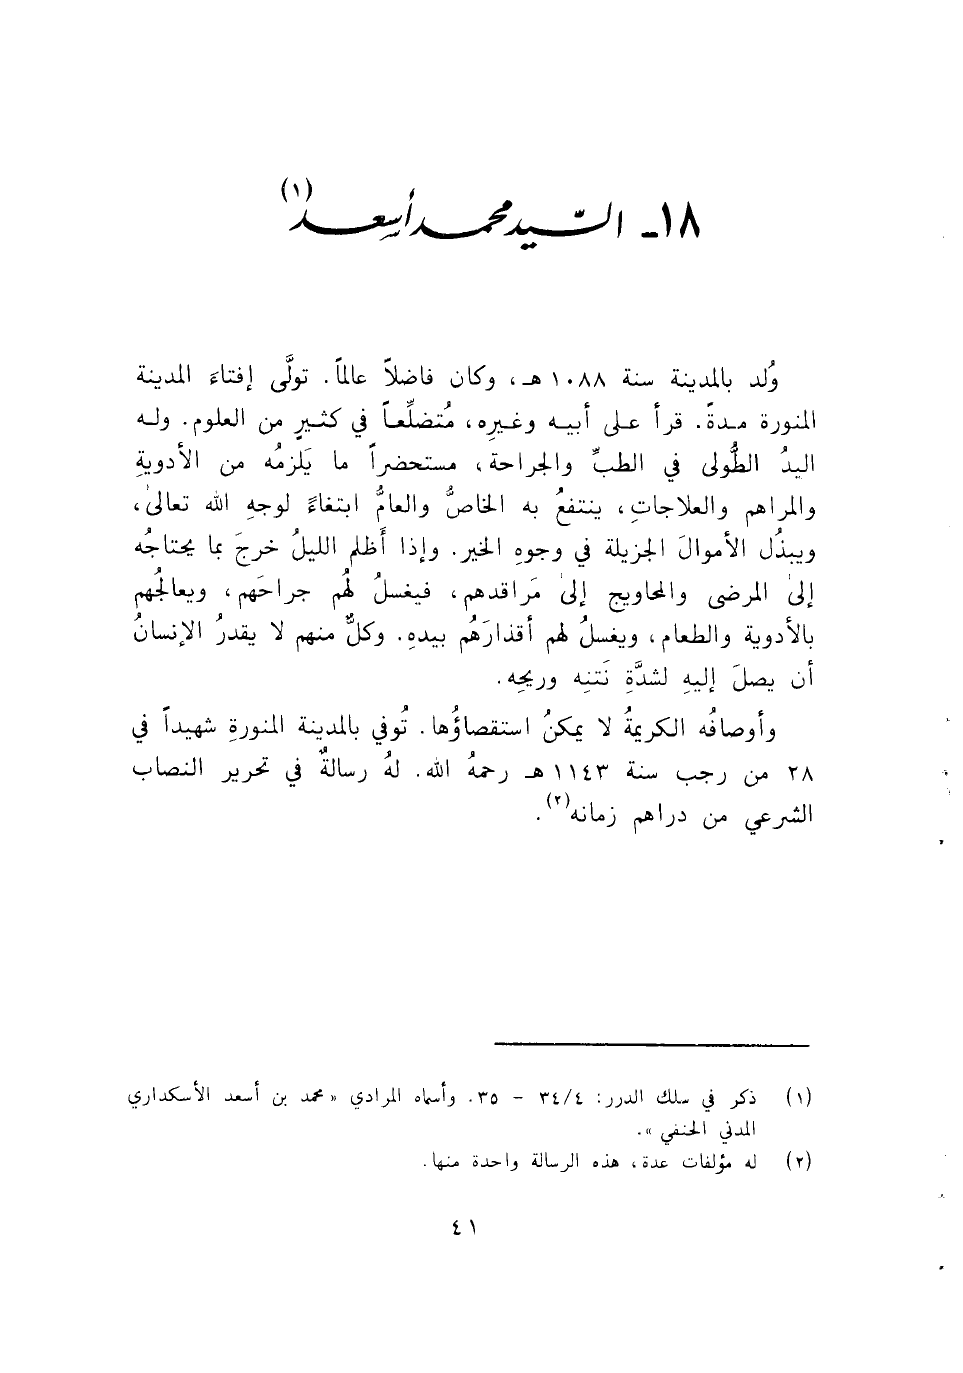 ١٨ـ السّيد محمد أسعد (١)
وُلد بالمدينة سنة ١٠٨٨ هـ، وكان فاضلاً عالماً. تولَّى إفتاءَ المدينة
المنورة مدةً. قرأ على أبيه وغيرِه، مُتضلِّعاً في كثيرٍ من العلوم. وله
اليدُ الطُّولى في الطبِّ والجراحة، مستحضراً ما يَلزمُه من الأدويةِ
والمراهم والعلاجاتِ، ينتفعُ به الخاصُّ والعامُّ ابتغاءً لوجهِ الله تعالىٰ،
ويبذُل الأموالَ الجزيلة في وجوهِ الخير. وإذا أَظلم الليلُ خرجَ بما يحتاجُه
إلىٰ المرضى والمحاويج إلىٰ مَراقدهم، فيغسلُ لهُم جراحَهم، ويعالجُهم
بالأدوية والطعام، ويغسلُ لهم أقذارَهُم بيدهِ. وكلٌّ منهم لا يقدرُ الإنسانُ
أن يصلَ إليهِ لشدَّةِ نَتنِه وريحِه.
وأوصافُه الكريمةُ لا يمكنُ استقصاؤُها. تُوفي بالمدينة المنورةِ شهيداً في
٢٨ من رجب سنة ١١٤٣ هـ رحمهُ الله. لهُ رسالةٌ في تحرير النصاب
الشرعي من دراهم زمانه(٢).
(١) ذكر في سلك الدرر: ٣٤/٤ - ٣٥. وأسماه المرادي «محمد بن أسعد الأسكداري
المدني الحنفي».
(٢) له مؤلفات عدة، هذه الرسالة واحدة منها.
٤١